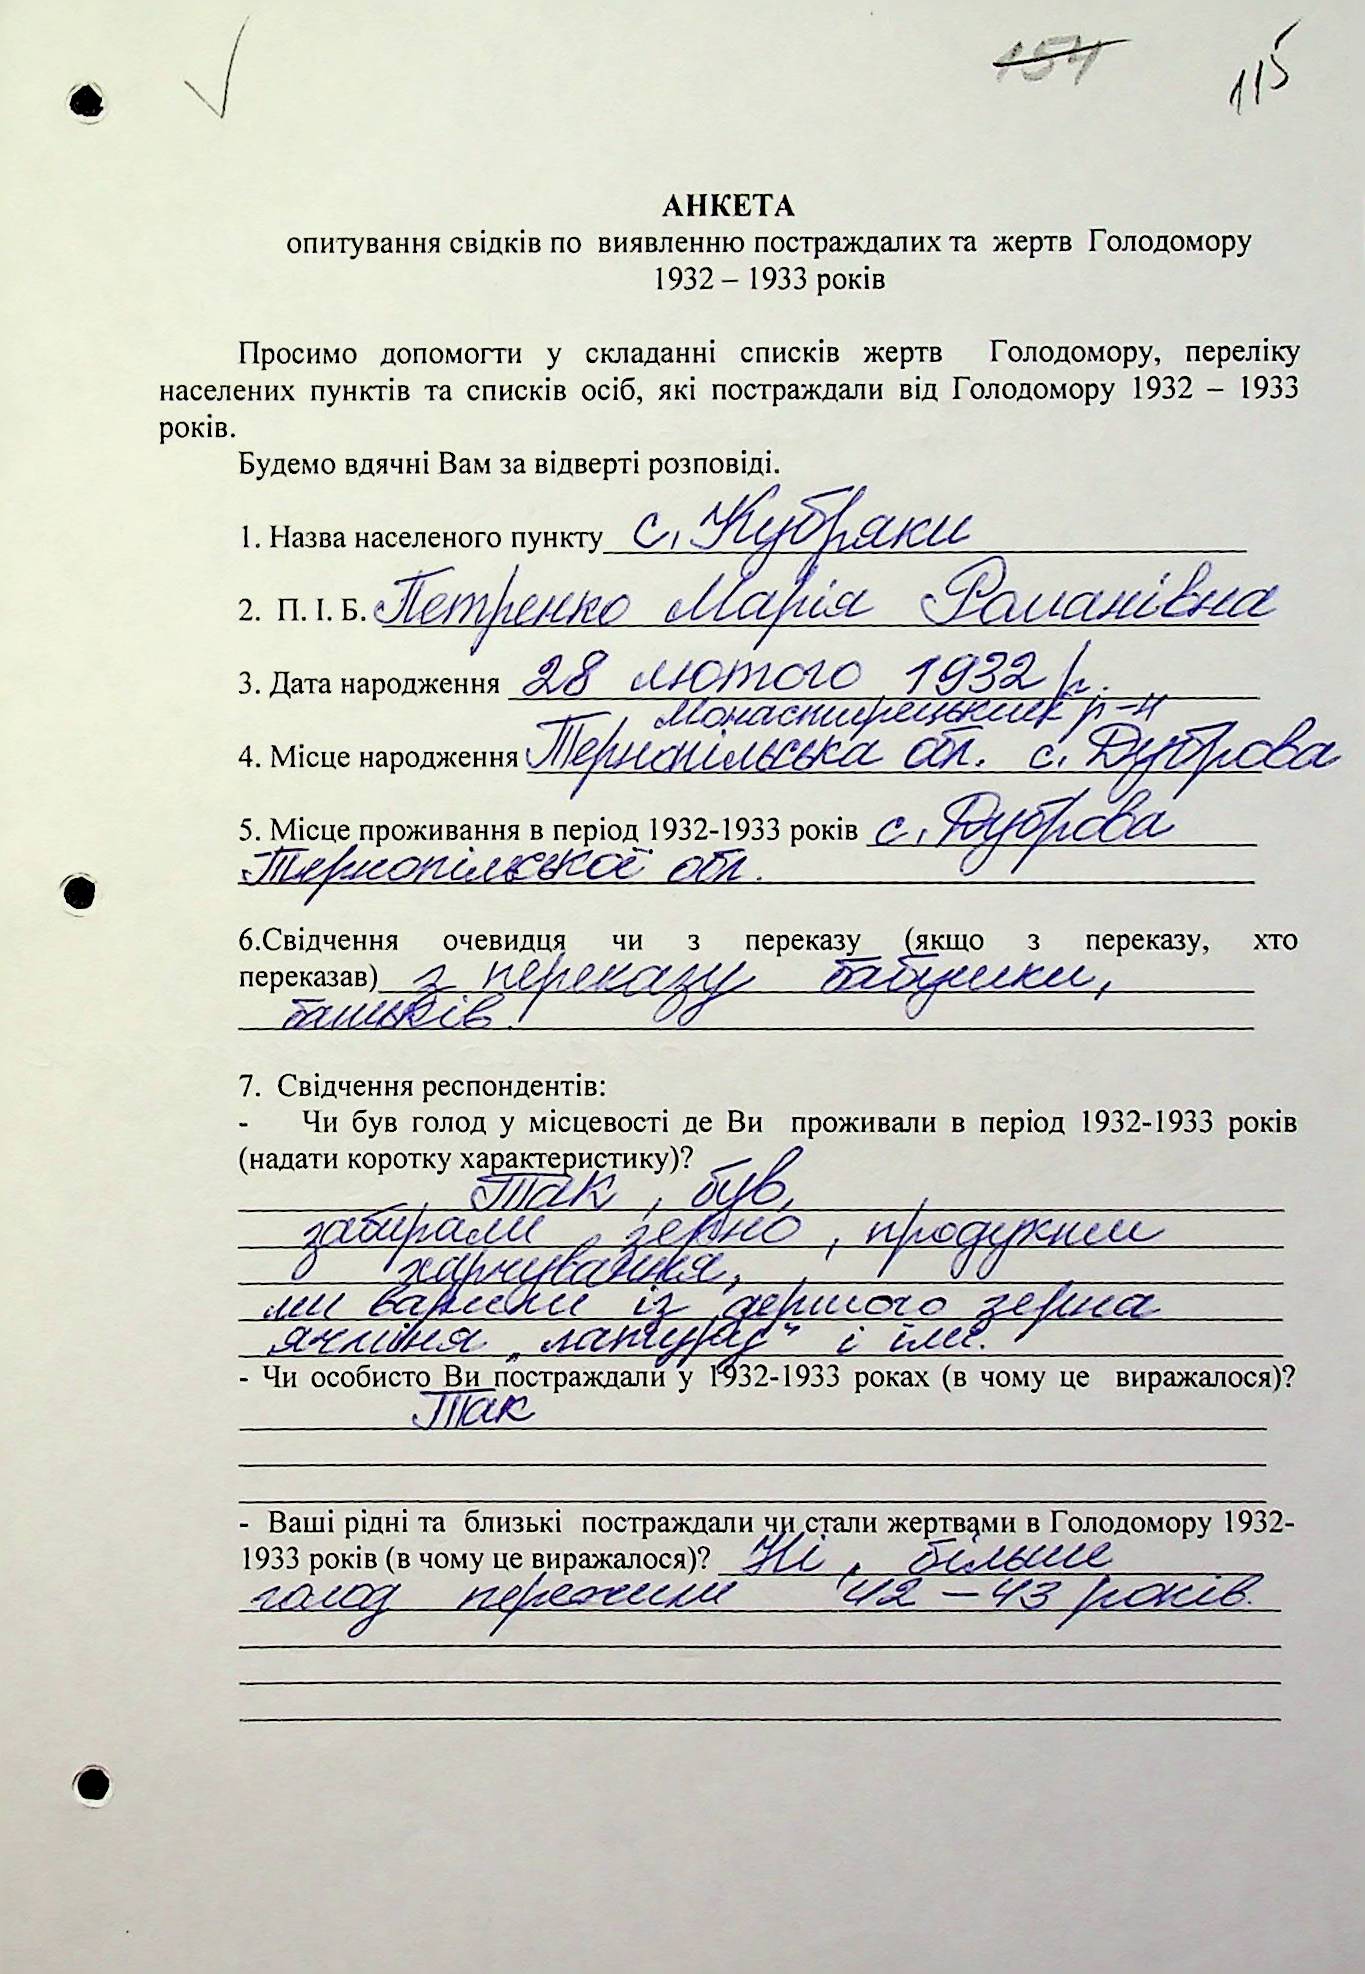 154
115
АНКЕТА
опитування свідків по виявленню постраждалих та жертв Голодомору
1932 – 1933 років
Просимо допомогти у складанні списків жертв Голодомору, переліку
населених пунктів та списків осіб, які постраждали від Голодомору 1932 – 1933
років.
Будемо вдячні Вам за відверті розповіді.
1. Назва населеного пункту с. Кубряки
2. П. І. Б. Петренко Марія Романівна
3. Дата народження 28 лютого 1932 р.
Монастирецький р-н
4. Місце народження Тернопільська обл. с. Дуброва
5. Місце проживання в період 1932-1933 років с. Дуброва
Тернопільської обл.
6.Свідчення очевидця чи з переказу (якщо з переказу, хто
переказав) з переказу бабушки,
батьків.
7. Свідчення респондентів:
- Чи був голод у місцевості де Ви проживали в період 1932-1933 років
(надати коротку характеристику)?
Так, був,
забирали зерно, продукти
харчування,
ми варили із зерна
ячміня „ " і їли.
- Чи особисто Ви постраждали у 1932-1933 роках (в чому це виражалося)?
Так
- Ваші рідні та близькі постраждали чи стали жертвами в Голодомору 1932-
1933 років (в чому це виражалося)? Ні, більше
голод пережили 42 – 43 років.